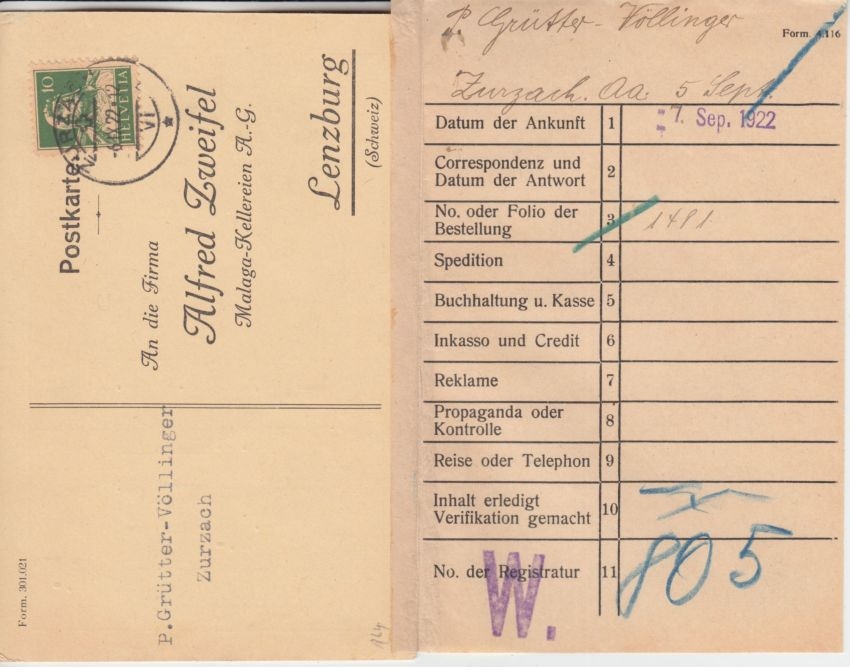 10
HELVETIA
Postkarte
An die Firma
Alfred Zweifel
Malaga-Kellereien A.-G.
Lenzburg
(Schweiz)
P.Grütter-Völlinger
Zurzach
Form. 301.021
164
P. Grütter-Völlinger
Form. 4.116
Zurzach. Aa. 5 Sept.
Datum der Ankunft 1 7. Sep. 1922
Correspondenz und
Datum der Antwort 2
No. oder Folio der
Bestellung 3 1491
Spedition 4
Buchhaltung u. Kasse 5
Inkasso und Credit 6
Reklame 7
Propaganda oder
Kontrolle 8
Reise oder Telephon 9
Inhalt erledigt
Verifikation gemacht 10
No. der Registratur 11 805
W.